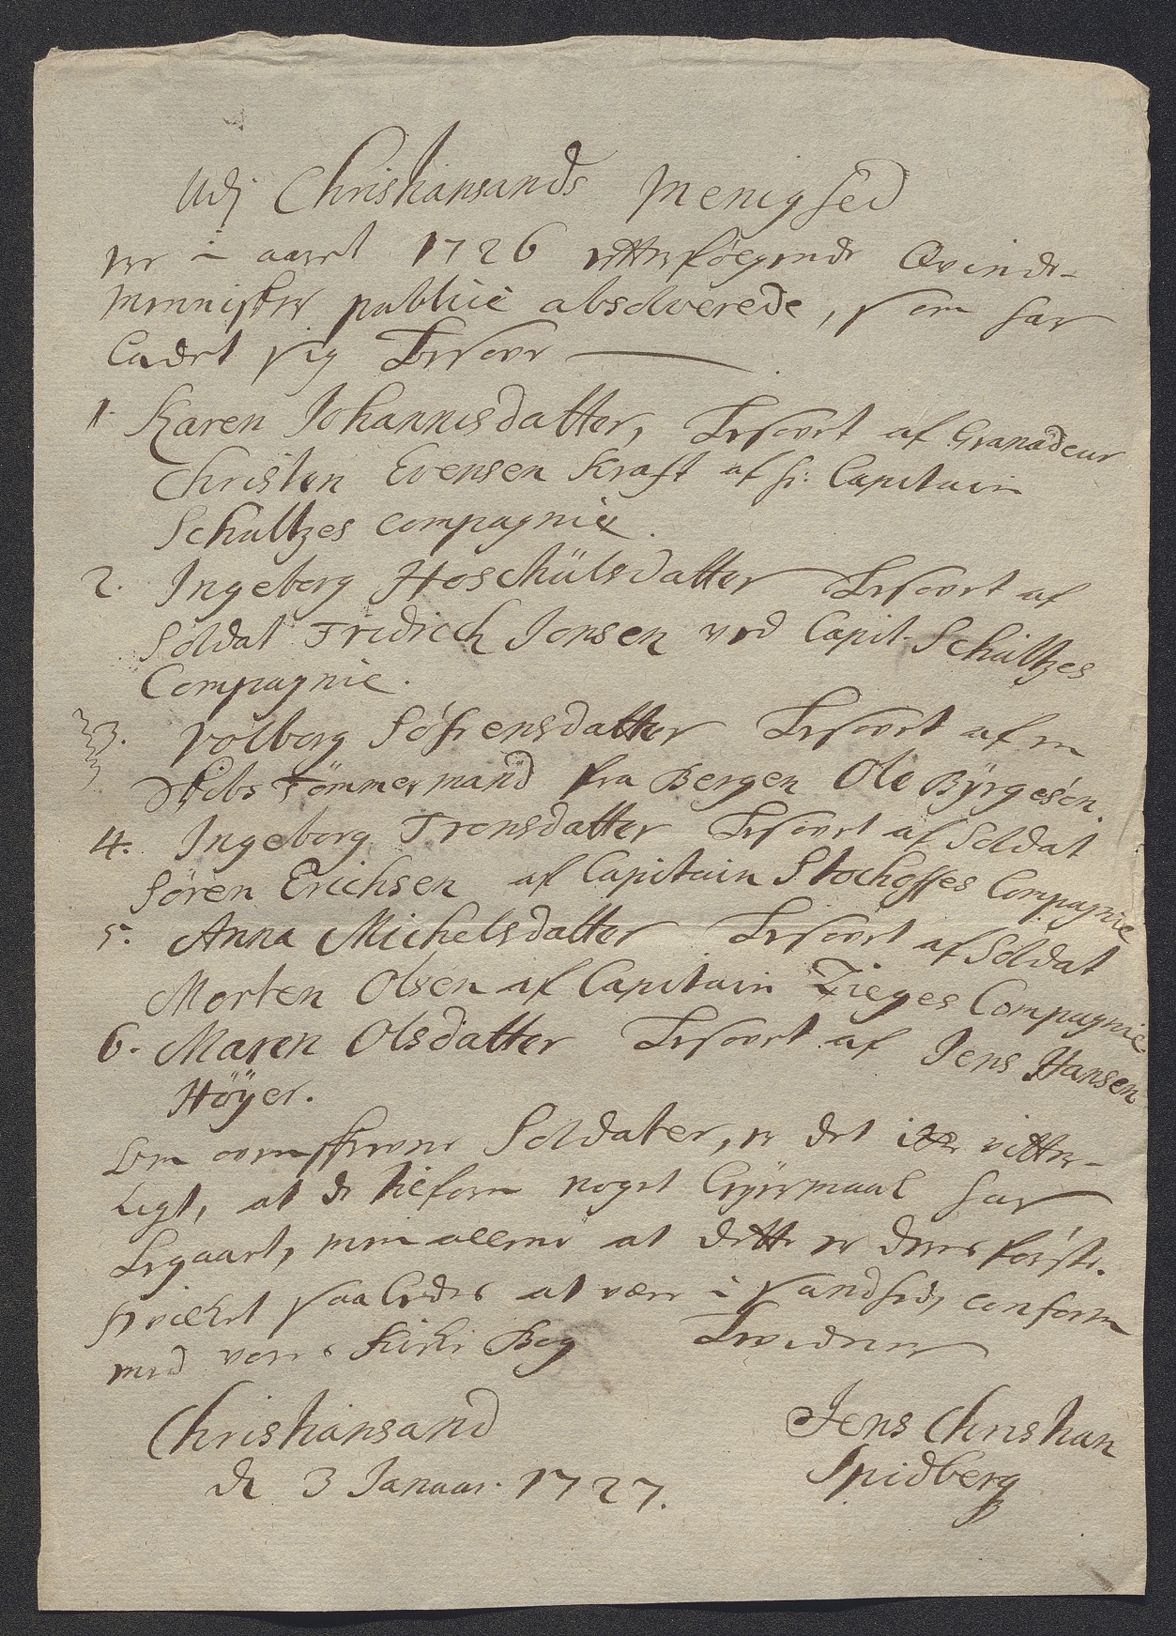 Udj Christiansands Menighed
ere i aaret 1726 efterfølgende Qvinde-
mennisker publice absolverede, som har
ladet sig besove
1. Karen Johannisdatter, besovet af Granadeur
Christen Evensen Kraft af hr: Capitain
Schultzes Compagnie.
2. Ingeborg Hoschülsdatter besovet af
Soldat Fridrich Jonsen ved Capit. Schultzes
Compagnie.
3. Volborg Söfrensdatter besovet af en
Skibs Tömmermand fra Bergen Ole Byrgesön.
4. Ingeborg Tronsdatter besovet af Soldat
Sören Erichsen af Capitain Stochoffes Compagnie
5. Anna Michelsdatter besovet af Soldat
Morten Olsen af Capitain Zieges Compagnie
6. Maren Olsdatter besovet af Jens Hansen
Höyer.
Om ovenskrevne Soldater, er det ikke vitter-
ligt, at de tilforn noget Leyermaal har
begaaet, men alleene at dette er deres første.
Hvilket saaledes at være i Sandhed conform
med vores Kirke Bog bevidner
Christiansand
de 3 Januar. 1727.
Jens Christian
Spidberg